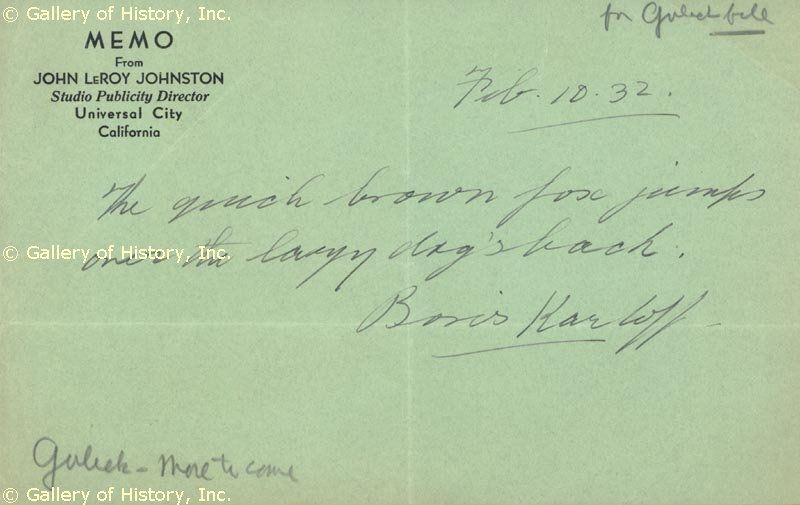 © Gallery of History, Inc.
for Gulick
MEMO
From
JOHN LEROY JOHNSTON
Studio Publicity Director
Universal City
California
Feb. 10. 32.
The quick brown fox jumps
© Gallery of History, Inc.
over the lazy dog's back.
Boris Karloff
Gulick - More to come
© Gallery of History, Inc.